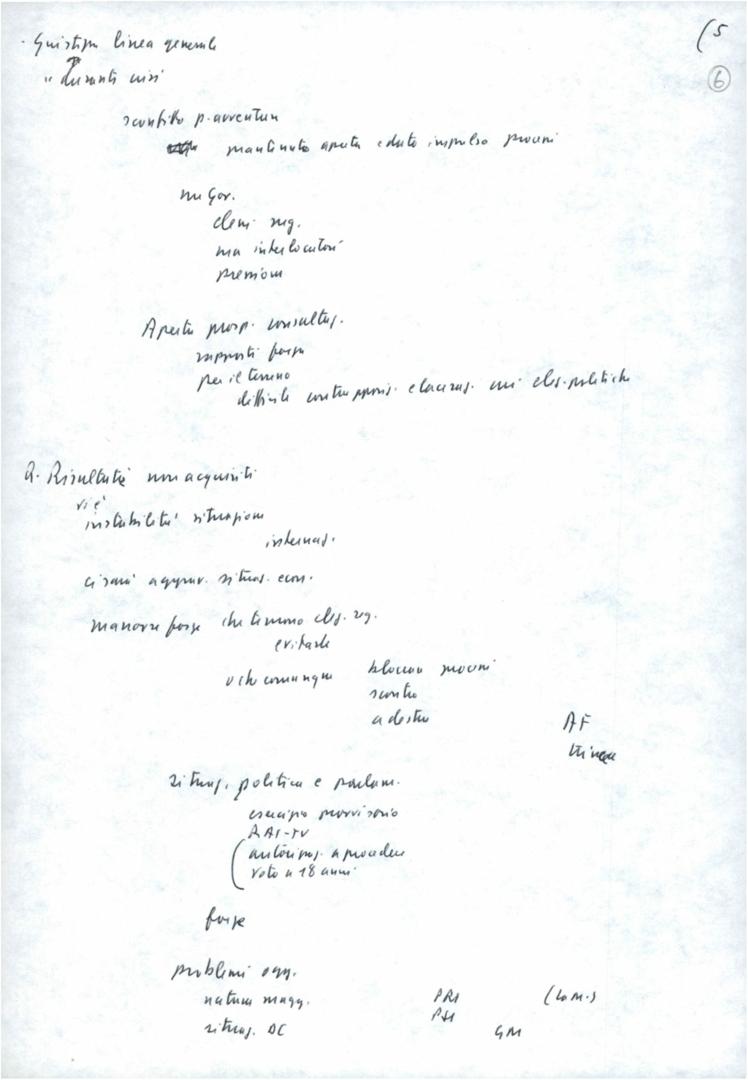 (5
6
- Giustezza linea generale
" durante crisi
sconfitto p. avventura
mantenuto aperta e dato impulso processi
nu Gov.
elem. neg.
ma interlocutori
pressioni
Aperta prosp. consultaz.
rapporti forze
per il terreno
difficile contrapposiz. e laceraz. cui eles. politiche
2. Risultati non acquisiti
vi è
instabilità situazione
internaz.
ci sarà aggrav. situaz. econ.
manovre forze che temono elez. reg.
evitarle
o che comunque bloccare processi
scontro
a destra
AF
situaz. politica e parlam.
esercizio provvisorio
RAI-TV
autorizzaz. a procedere
voto a 18 anni
forze
problemi ogg.
natura magg. PRI (La M.)
PSI
situaz. DC GM